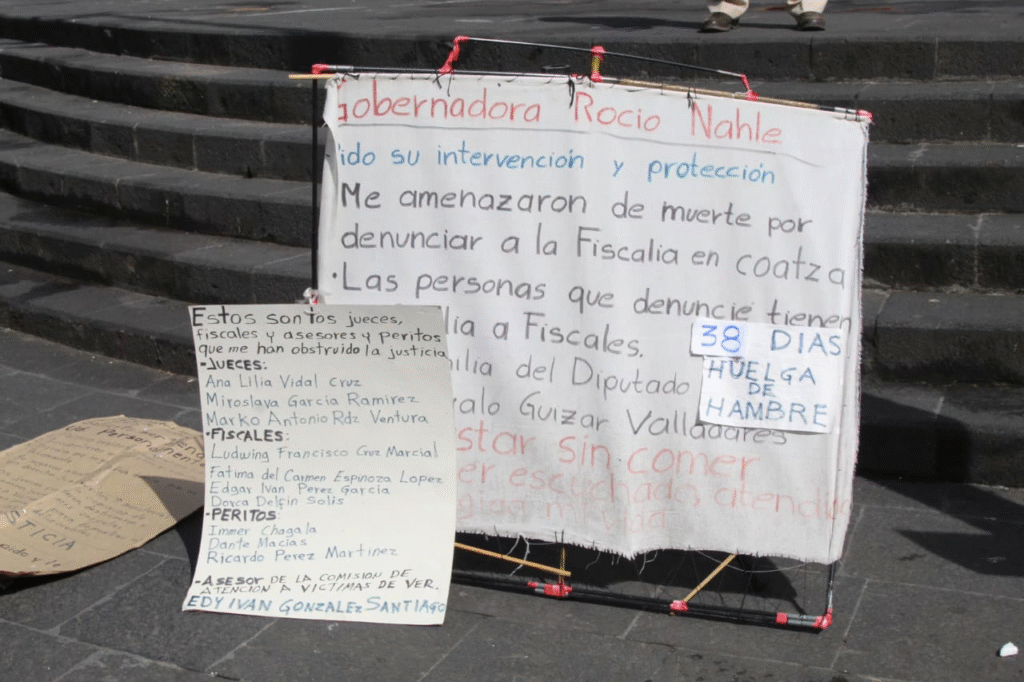 Gobernadora Rocio Nahle
ido su intervención y protección
Me amenazaron de muerte por
denunciar a la Fiscalia en coatza
·Las personas que denuncié tienen
lia a Fiscales.
ilia del Diputado
alo Guizar Valladares
star sin comer
er escuchada, atendida
38 DIAS
HUELGA
DE
HAMBRE
Estos son los jueces,
fiscales y asesores y peritos
que me han obstruido la justicia
-JUECES:
Ana Lilia Vidal Cruz
Miroslava Garcia Ramirez
Marko Antonio Rdz Ventura
·FISCALES:
Ludwing Francisco Cruz Marcial
Fatima del Carmen Espinoza Lopez
Edgar Ivan Perez Garcia
Dorca Delfin Solis
·PERITOS:
Immer Chagala
Dante Macias
Ricardo Perez Martinez
-ASESOR DE LA COMISION DE
ATENCION A VICTIMAS DE VER.
EDY IVAN GONZALEZ SANTIAGO